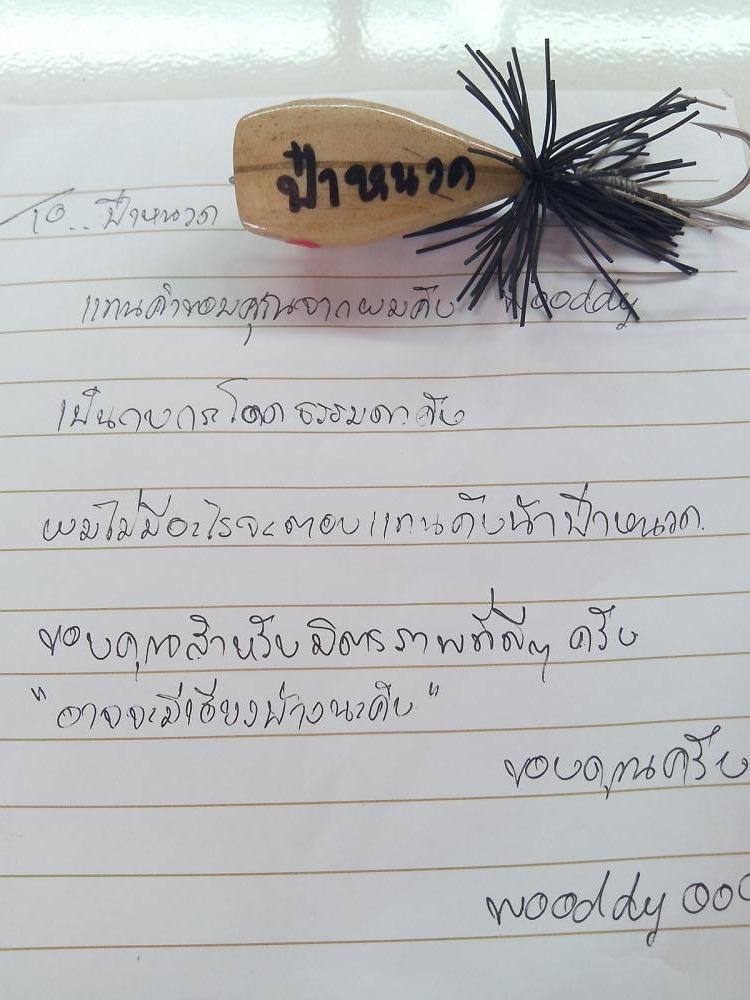 ป๋าหนวด
To.. ป๋าหนวด
แทนคำขอบคุณจากผมคับ wooddy
เป็นกบกระโดด ธรรมดา คับ
ผมไม่มีอะไรจะตอบแทนคับน้าป๋าหนวด.
ขอบคุณสำหรับมิตรภาพที่ดีๆ ครับ
"อาจจะมีเอียงบ้างนะคับ"
ขอบคุณครับ
wooddy